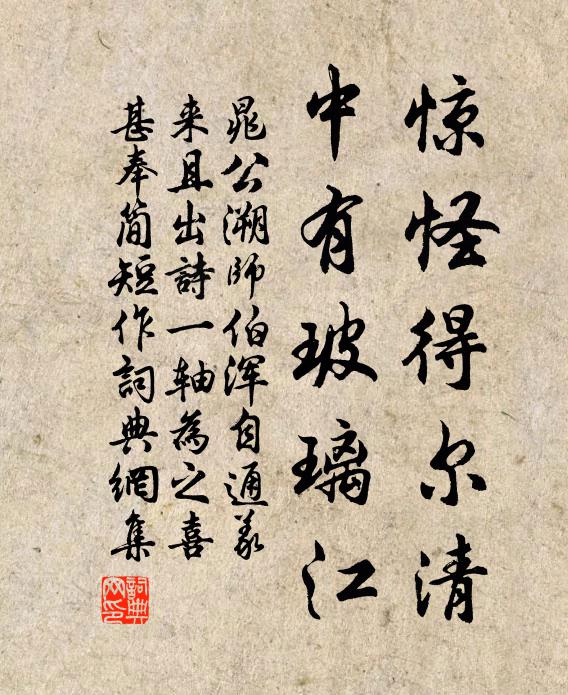 惊怪得尔清
中有玻璃江
晁公溯师伯浑自通义
来且出詩一轴為之喜
甚奉简短作詞典網集
詞典网印